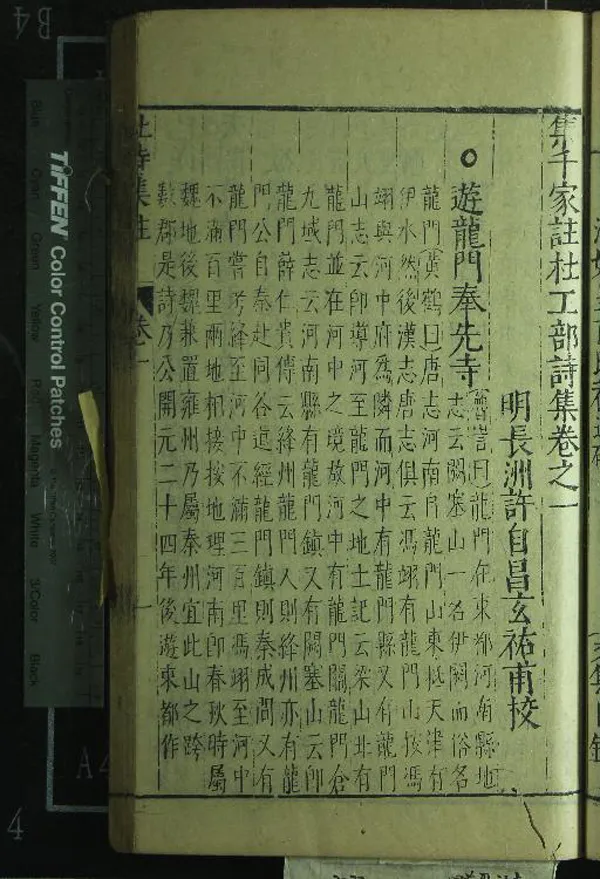 集千家註杜工部詩集卷之一
明長洲許自昌玄祐甫校
○遊龍門奉先寺
魯訔曰龍門在東都河南縣地
志云闕塞山一名伊闕而俗名
龍門黃鶴曰唐志河南有龍門山東抵天津有
伊水然後漢志唐志俱云馮翊有龍門山按馮
翊與河中府為隣而河中有龍門縣又有龍門
山志云即導河至龍門之地土記云梁山北有
龍門並在河中之境故河中有龍門關龍門倉
九域志云河南縣有龍門鎮又有闕塞山云即
龍門薛仁貴傳云絳州龍門人則絳州亦有龍
門公自秦赴同谷道經龍門鎮則秦成間又有
龍門嘗考絳至河中不滿三百里馮翊至河中
不滿百里兩地相接按地理河南即春秋時屬
魏地後魏兼置雍州乃屬秦州宜此山之跨
數郡是詩乃公開元二十四年後遊東都作
杜詩集註 卷一 一
TIFFEN Color Control Patches
Blue
Cyan
Green
Yellow
Red
Magenta
White
3/Color
Black
B4
A4
4